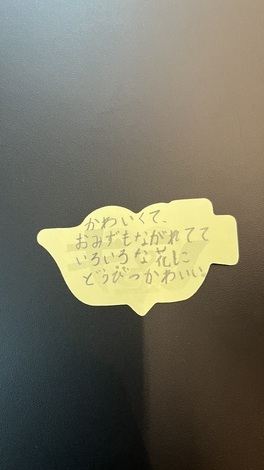 かわいくて、
おみずもながれてて
いろいろな花に
どうぶつかわいい